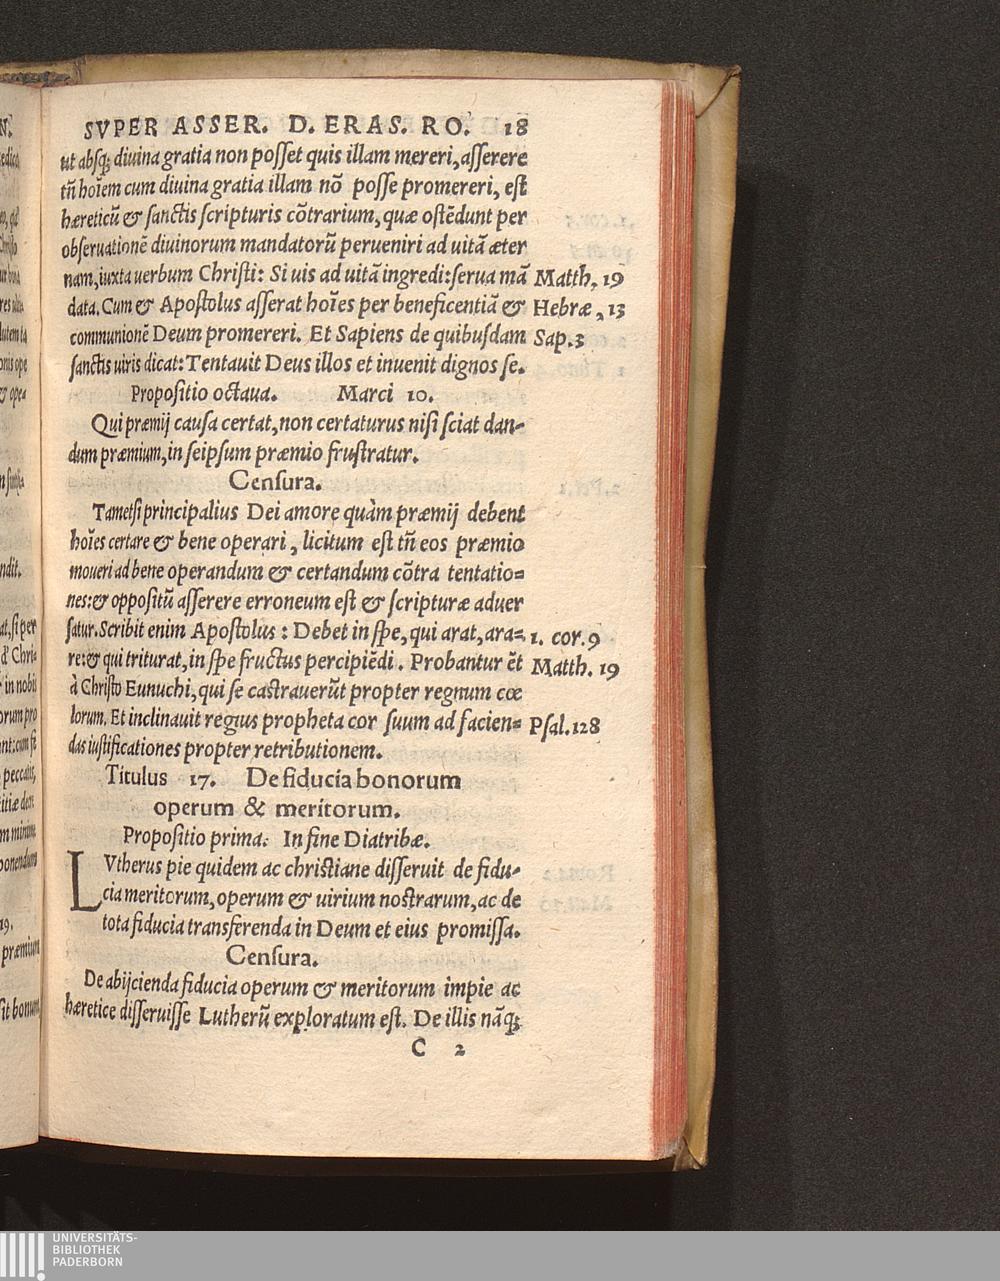 SVPER ASSER. D. ERAS. RO. 18
ut absq; diuina gratia non posset quis illam mereri, asserere
tñ hoīem cum diuina gratia illam nō posse promereri, est
hæreticū & sanctis scripturis cōtrarium, quæ ostēdunt per
obseruationē diuinorum mandatorū perueniri ad uitā æter
nam, iuxta uerbum Christi: Si uis ad uitā ingredi: serua mā Matth. 19
data. Cum & Apostolus asserat hoīes per beneficentiā & Hebræ, 13
communionē Deum promereri. Et Sapiens de quibusdam Sap.3
sanctis uiris dicat: Tentauit Deus illos et inuenit dignos se.
Propositio octaua. Marci 10.
Qui præmij causa certat, non certaturus nisi sciat dan-
dum præmium, in seipsum præmio frustratur.
Censura.
Tametsi principalius Dei amore quàm præmij debent
hoīes certare & bene operari, licitum est tñ eos præmio
moueri ad bene operandum & certandum cōtra tentatio=
nes: & oppositū asserere erroneum est & scripturæ aduer
satur. Scribit enim Apostolus: Debet in spe, qui arat, ara= 1. cor. 9
re: & qui triturat, in spe fructus percipiēdi. Probantur ēt Matth. 19
à Christo Eunuchi, qui se castrauerūt propter regnum cœ
lorum. Et inclinauit regius propheta cor suum ad facien= Psal. 128
das iustificationes propter retributionem.
Titulus 17. De fiducia bonorum
operum & meritorum.
Propositio prima. In fine Diatribæ.
LVtherus pie quidem ac christiane disseruit de fidu-
cia meritorum, operum & uirium nostrarum, ac de
tota fiducia transferenda in Deum et eius promissa.
Censura.
De abijcienda fiducia operum & meritorum impie ac
hæretice disseruisse Lutherū exploratum est. De illis nāq;
C 2
UNIVERSITÄTS-
BIBLIOTHEK
PADERBORN